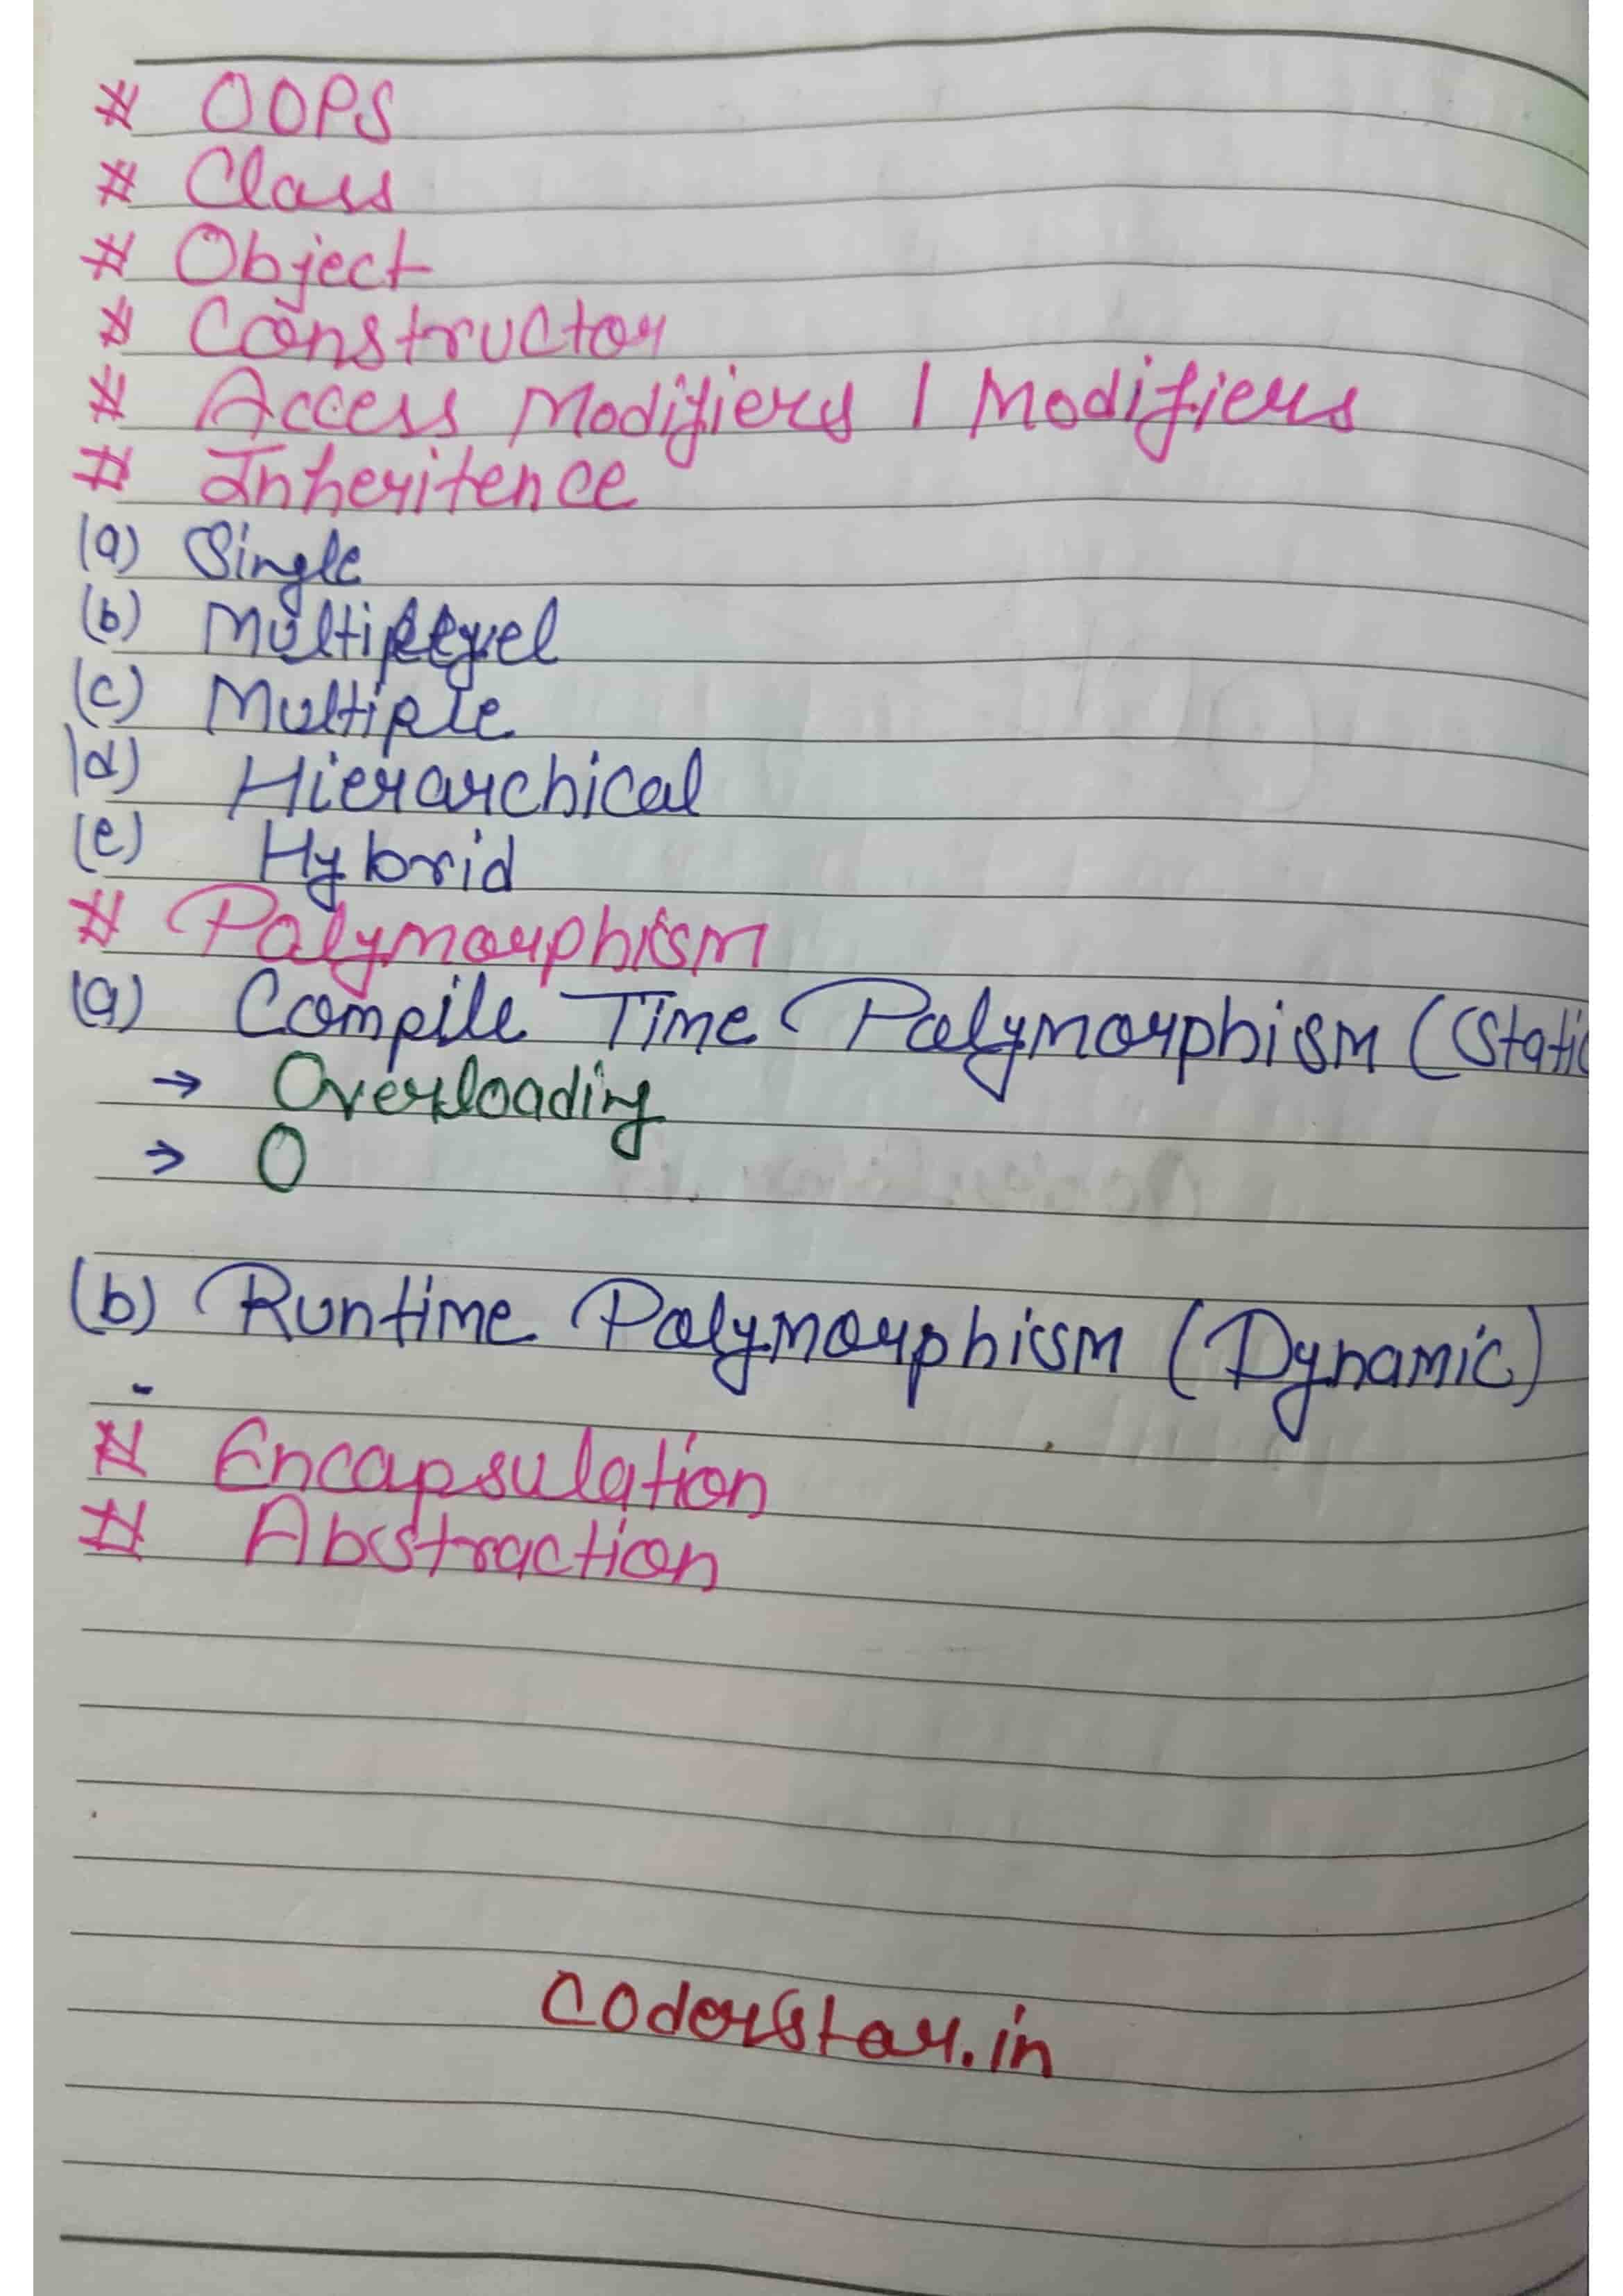 # OOPS
# Class
# Object
# Constructor
# Access Modifiers | Modifiers
# Inheritence
(a) Single
(b) Multilevel
(c) Multiple
(d) Hierarchical
(e) Hybrid
# Polymorphism
(a) Compile Time Polymorphism (Static
→ Overloading
→ O
(b) Runtime Polymorphism (Dynamic)
-
# Encapsulation
# Abstraction
CoderStar.in